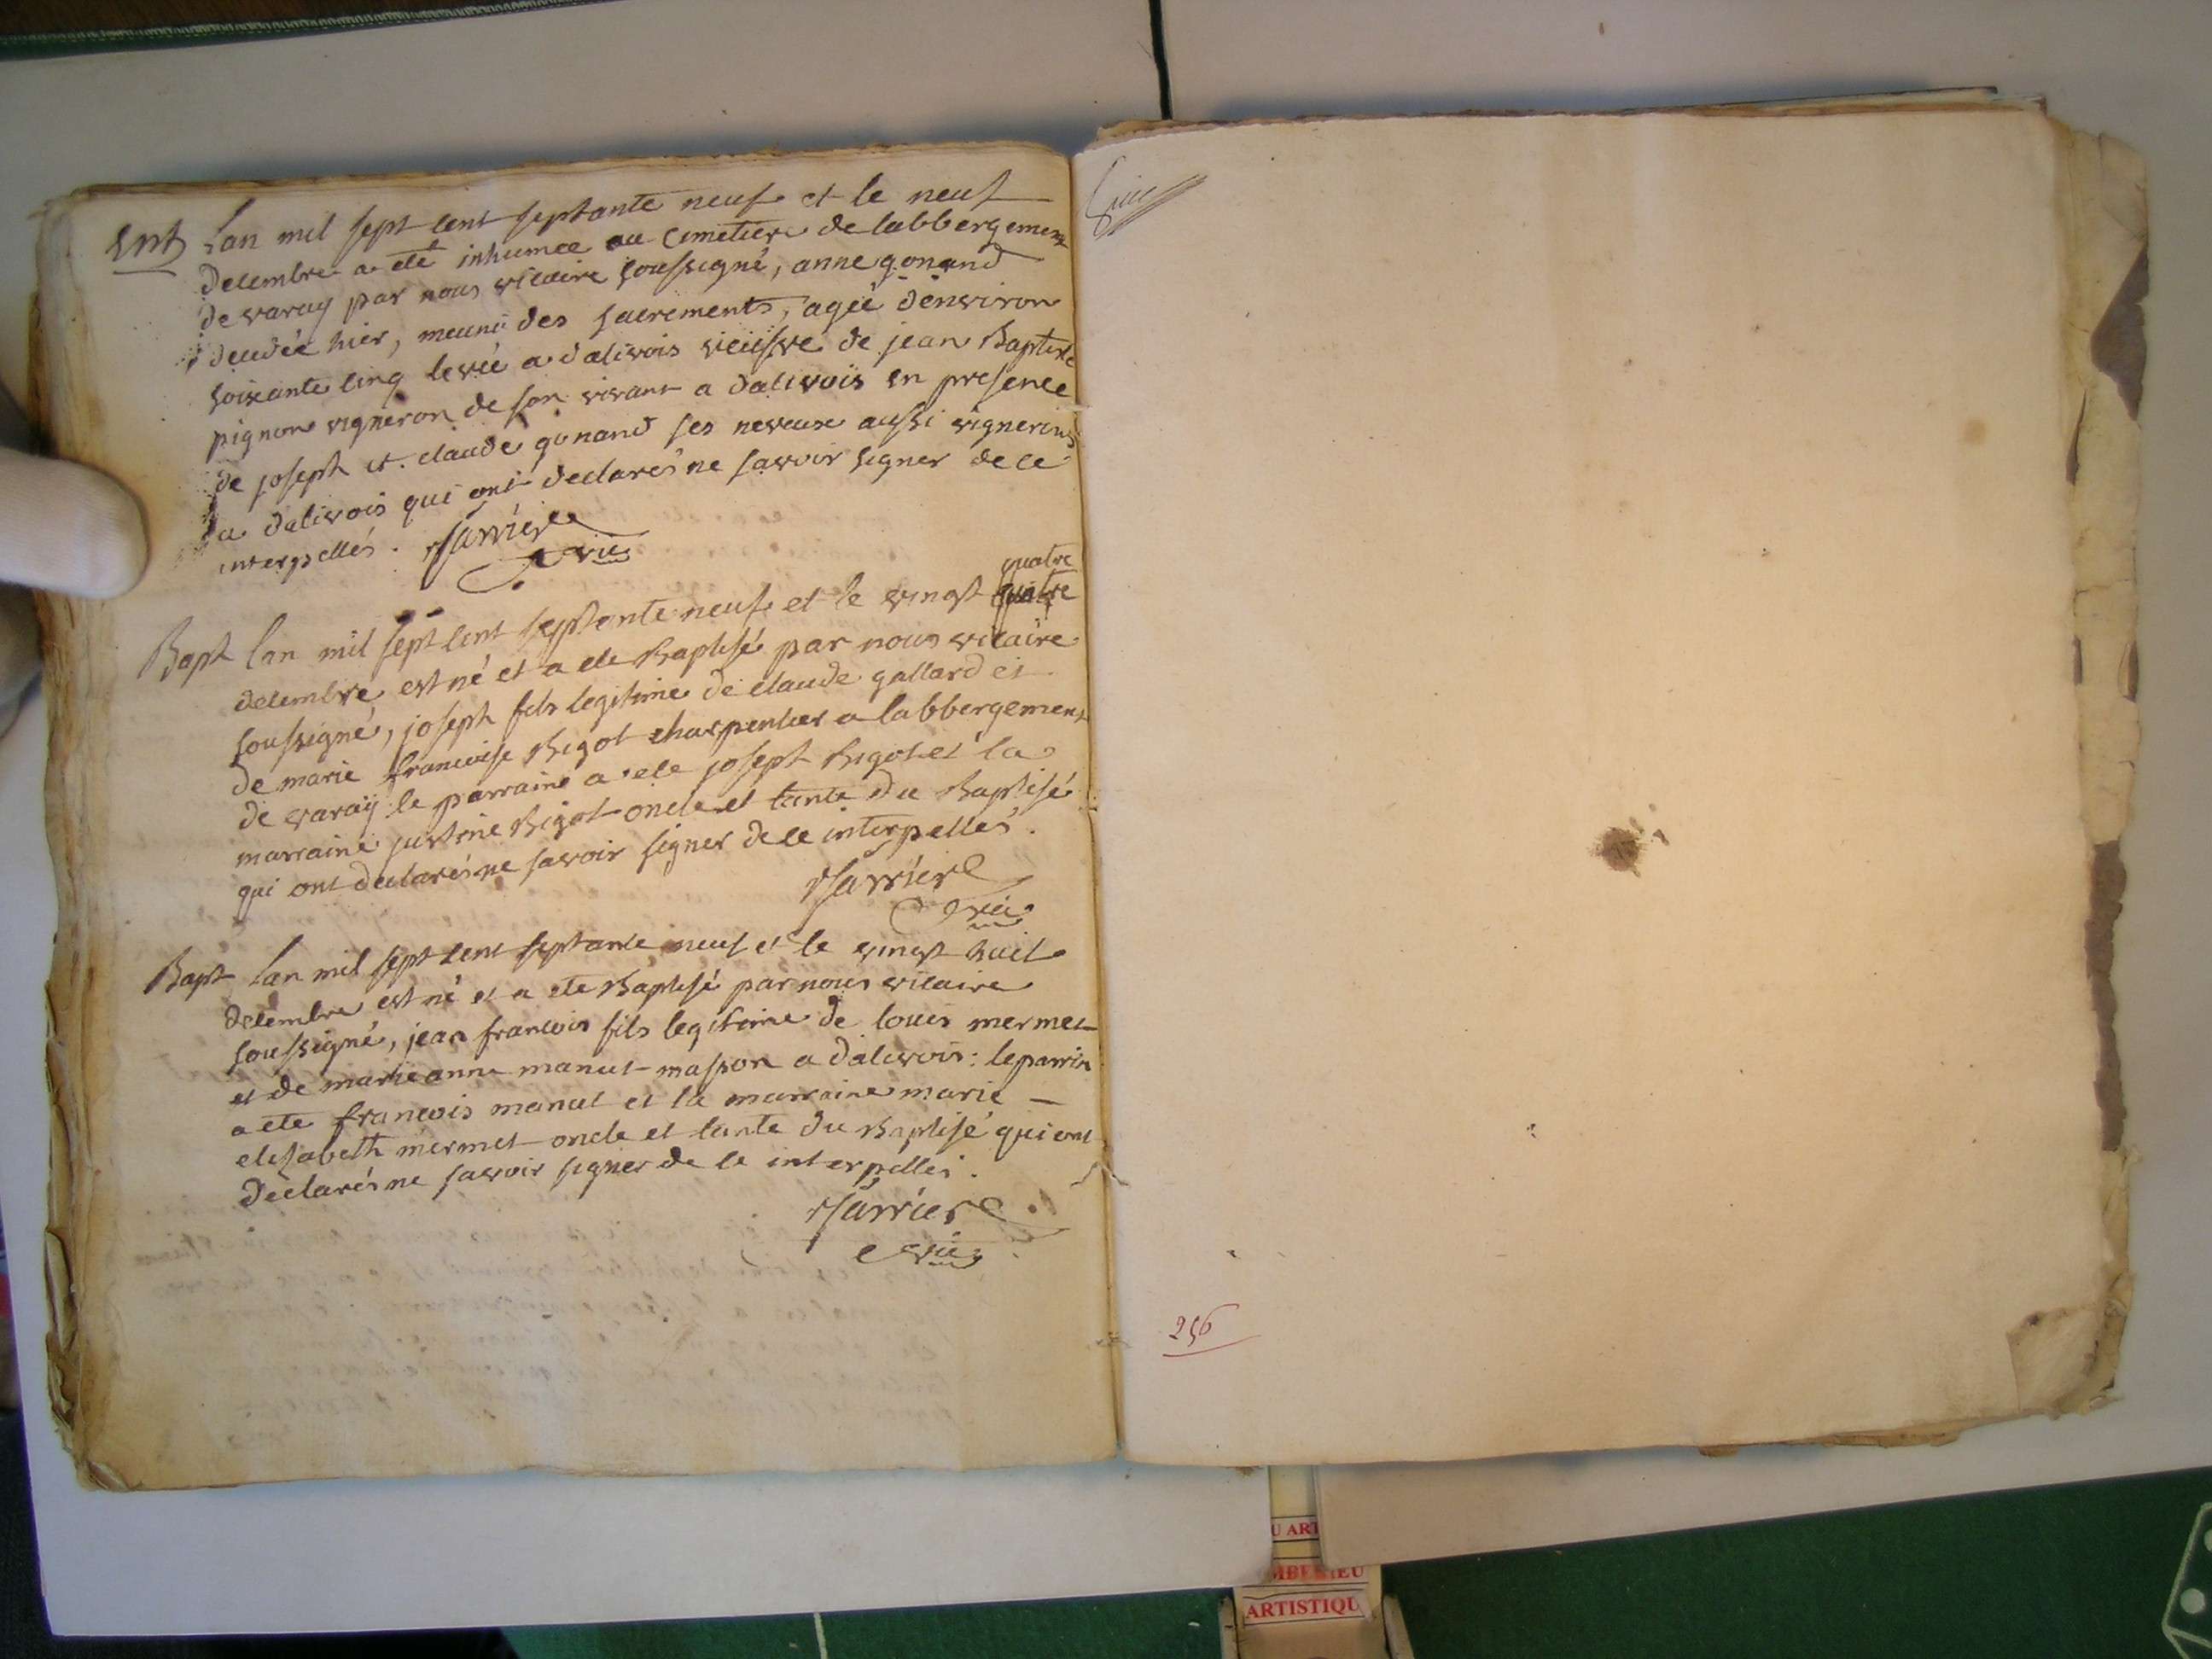 Ent Lan mil sept cent septante neuf et le neuf
decembre a eté inhumee au cimetiere de labbergement
de varay par nous vicaire soussigné, anne gonand
decedée hier, meunie des sacrements, agée denviron
soixante cinq levée a dalivois vieufve de jean Baptiste
pignon vigneron de son vivant a dalivois en presence
de joseph et claude gonand ses neveux aussi vignerons
a dalivois qui ont declarés ne savoir signer de ce
interpellés. 
vic
quatre
Bapt lan mil sept cent septante neuf et le vingt quatre
decembre est né et a ete Baptisé par nous vicaire
soussigné, joseph fils legitime de claude gallard et
de marie francoise Bigot charpentier a labbergement
de varaÿ le parraine a ete joseph Bigot et la
marraine justine Bigot oncle et tante du Baptisé
qui ont declarés ne savoir signer de ce interpellés.
vic
Bapt lan mil sept cent septante neuf et le vingt huit
decembre est né et a ete Baptisé par nous vicaire
soussigné, jean francois fils legitime de louis mermet
et de marie anne manut masson a dalivois: le parrin
a ete francois manut et la marraine marie —
elizabeth mermet oncle et tante du Baptisé qui ont
declarés ne savoir signer de ce interpellés.
vic
256
U ART
MBERIEU
ARTISTIQU